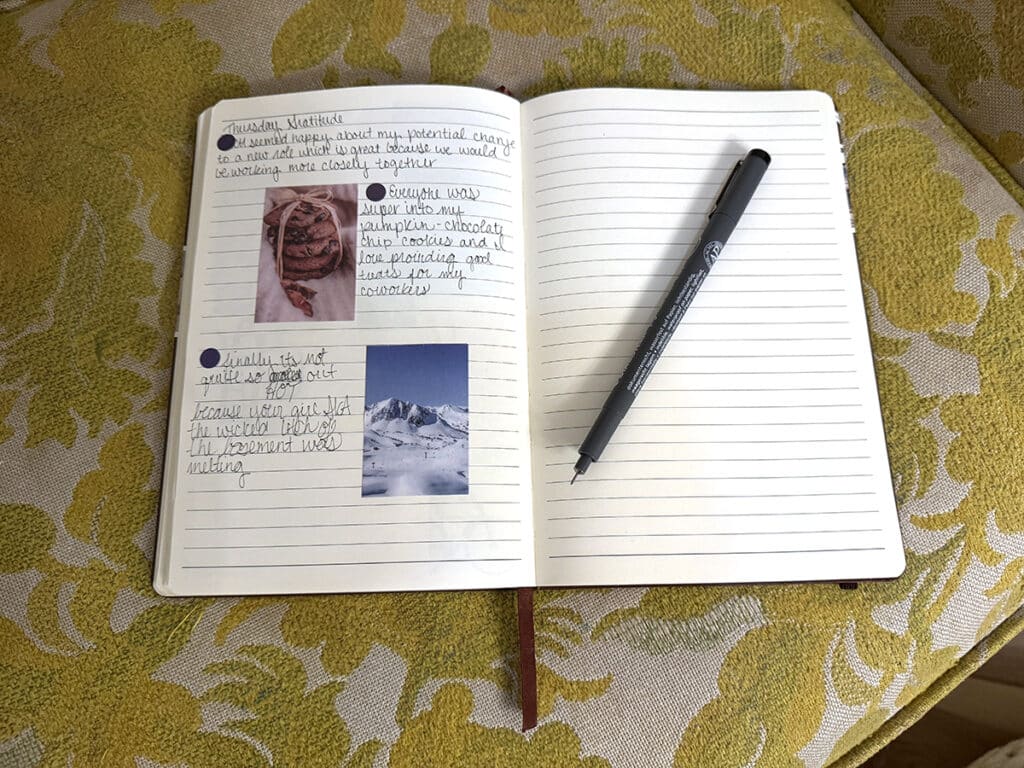 Thursday Gratitude
seemed happy about my potential change
to a new role which is great because we would
be working more closely together
Everyone was
super into my
pumpkin-chocolate
chip cookies and I
love providing good
treats for my
coworkers
finally its not
quite so out
HOT
because your girl AKA
the wicked witch of
the basement was
melting